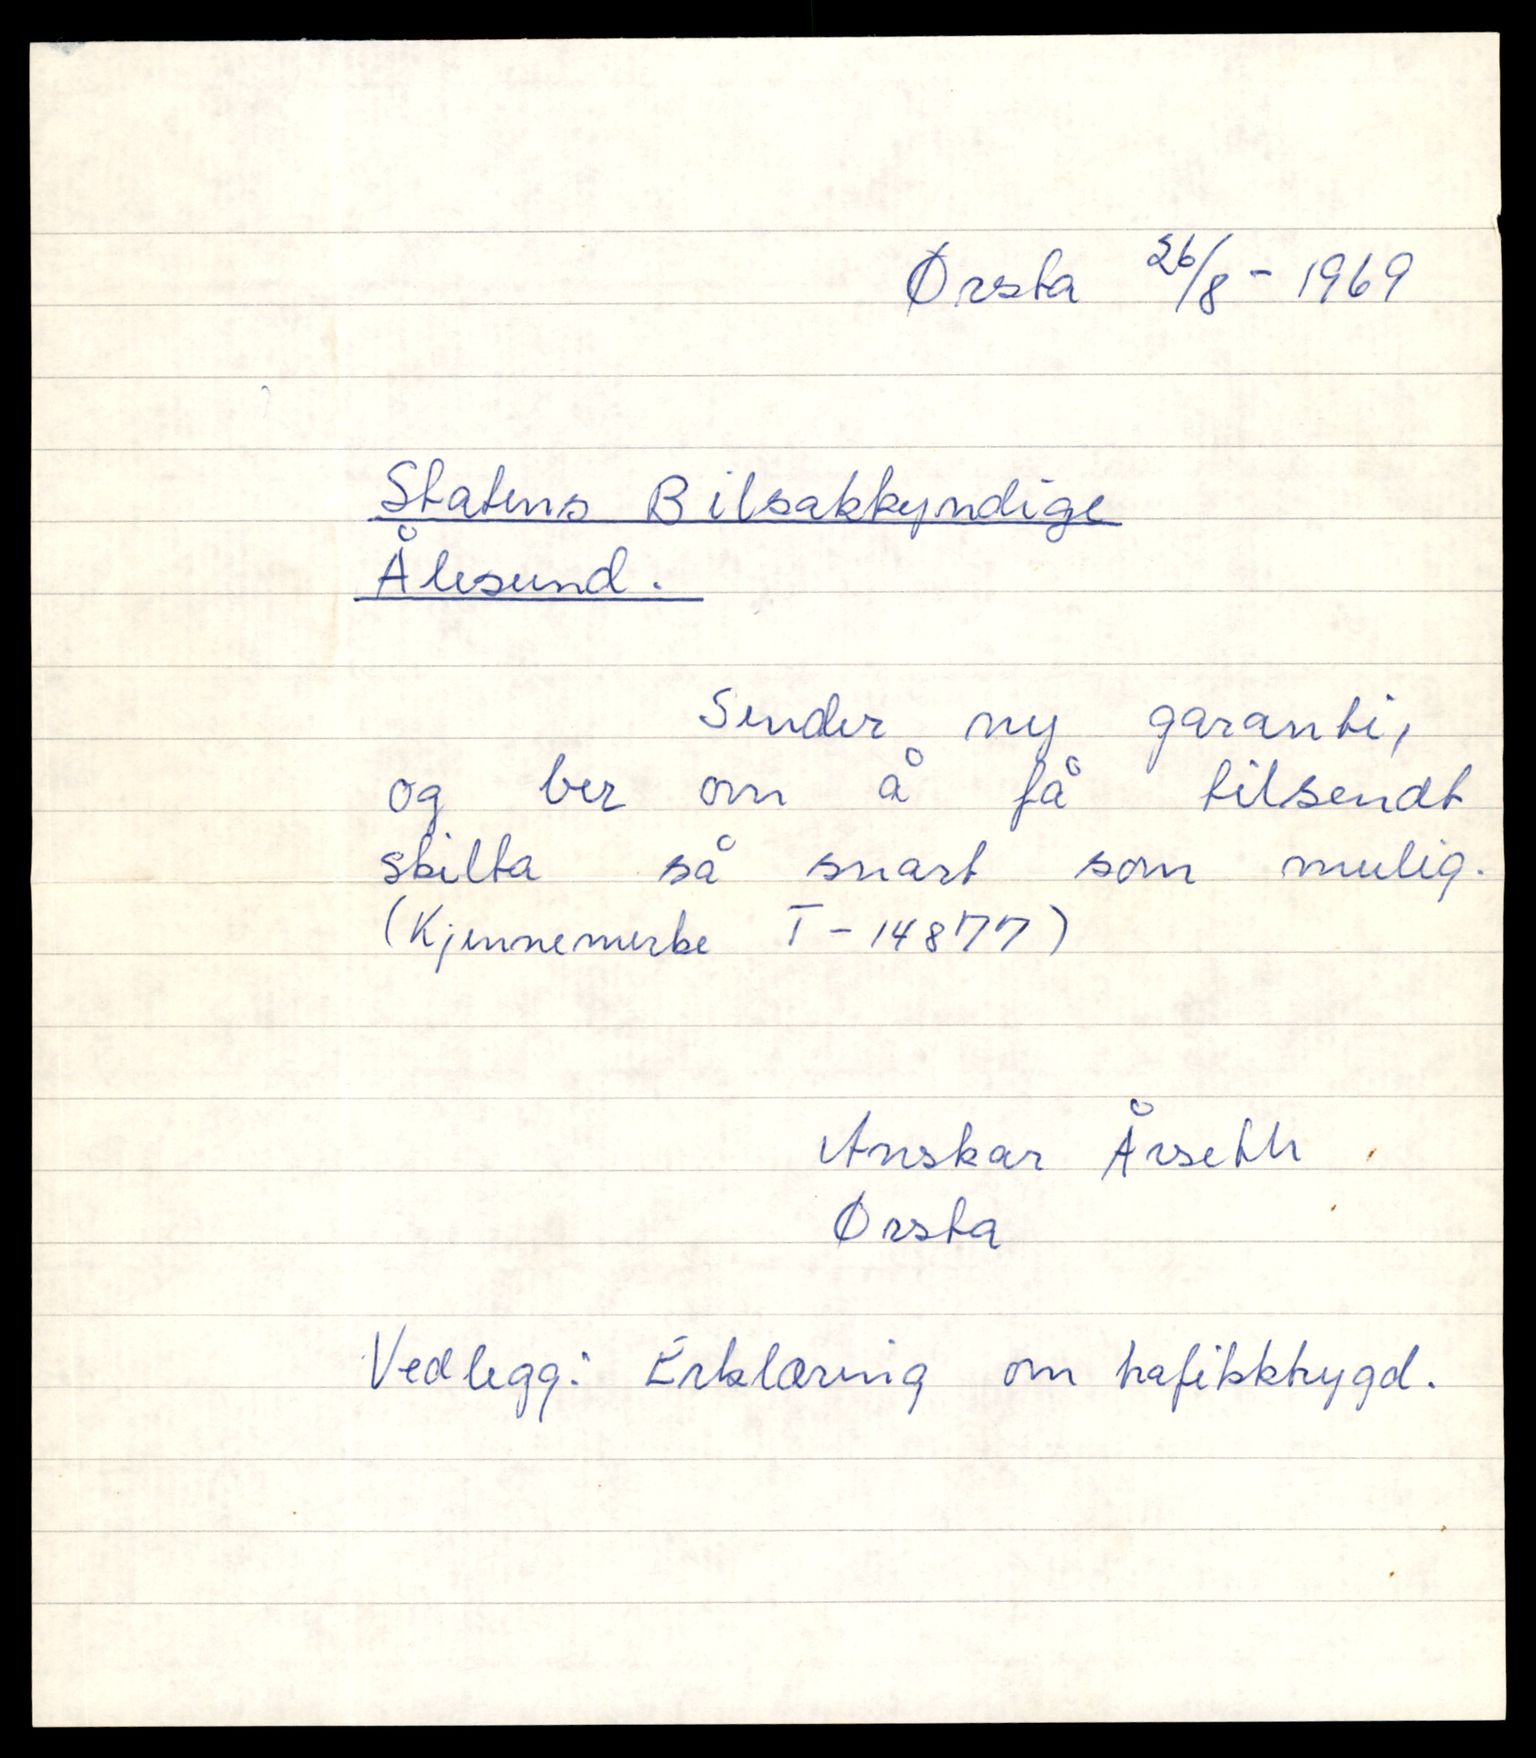 Ørsta 26/8 - 1969
Statens Bilsakkyndige
Ålesund.
Sender ny garanti,
og ber om å få tilsendt
skilta så snart som mulig.
(Kjennemerke T - 14877)
Anskar Årseth
Ørsta
Vedlegg: Erklæring om trafikktrygd.